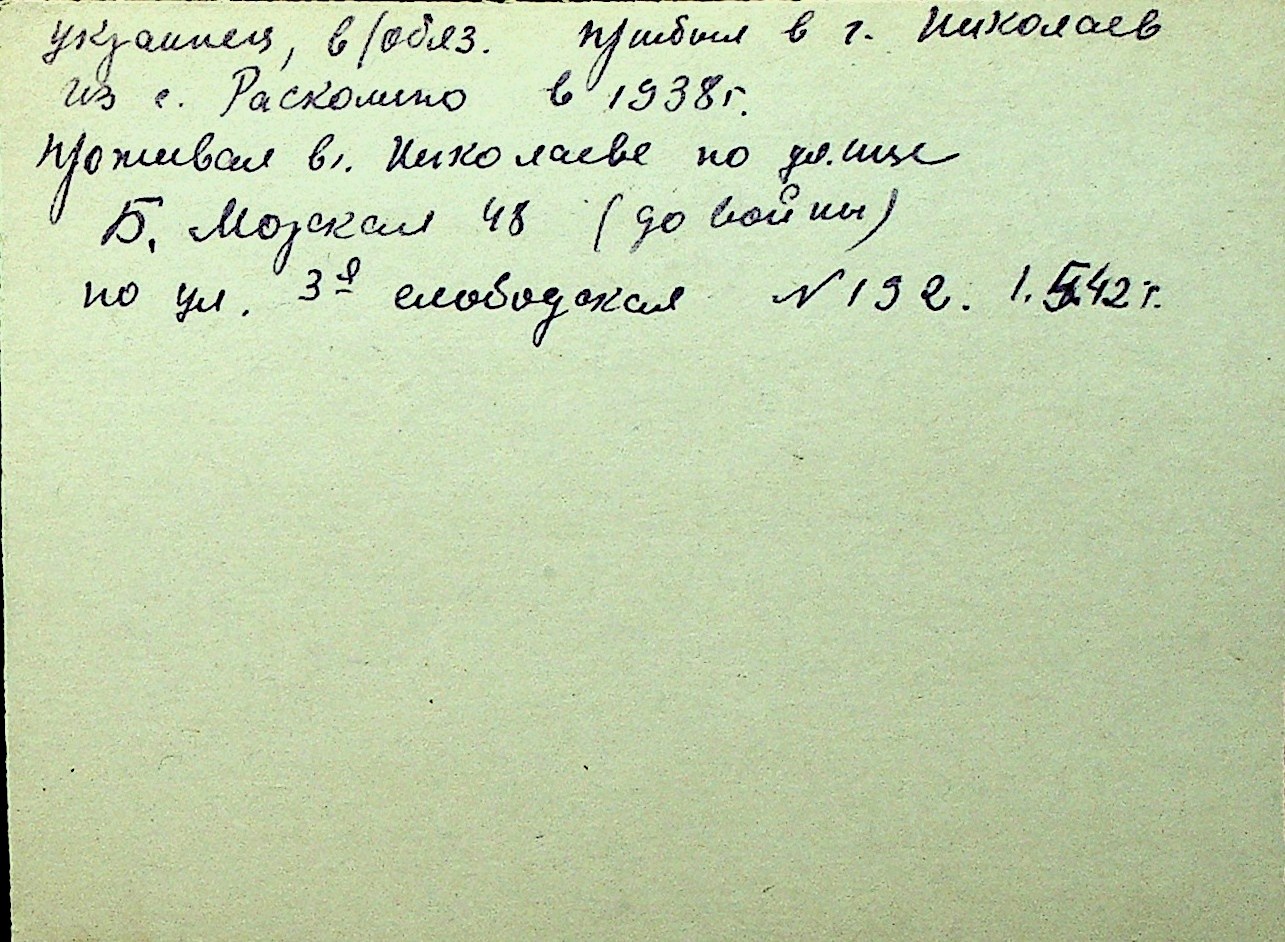 украинец, в/обяз. прибыл в г. Николаев
из с. Расколино в 1938г.
проживал в г. Николаеве по улице
Б. Морская 48 (до войны)
по ул. 3я слободская № 192. 1. 42 г.